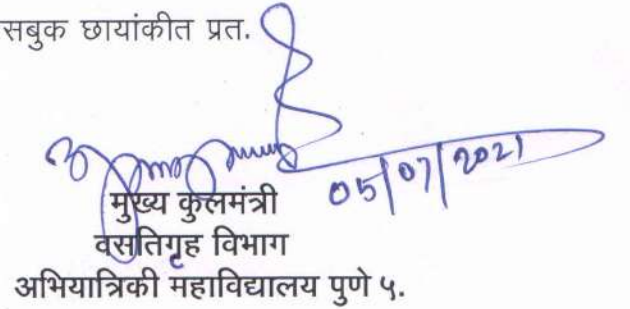 सबुक छायांकीत प्रत.
05/07/2021
मुख्य कुलमंत्री
वसतिगृह विभाग
अभियात्रिकी महाविद्यालय पुणे ५.